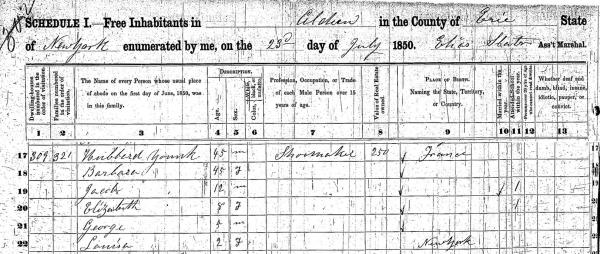 SCHEDULE I.—Free Inhabitants in Alden in the County of Erie State
of New York enumerated by me, on the 23d day of July 1850. Elias Ass't Marshal.
Dwelling-houses numbered in the order of visitation.
Families numbered in the order of visitation.
The Name of every Person whose usual place of abode on the first day of June, 1850, was in this family.
DESCRIPTION.
Age.
Sex.
Color,
Profession, Occupation, or Trade of each Male Person over 15 years of age.
Value of Real Estate owned.
PLACE OF BIRTH.
Naming the State, Territory, or Country.
Married within the year.
Whether deaf and dumb, blind, insane, idiotic, pauper, or convict.
1 2 3 4 5 6 7 8 9 10 11 12 13
17 309 321 Hubberd Younk 45 m Shoemaker 250 France
18 Barbara 45 F
19 Jacob 12 m 1
20 Elizabeth 8 F 1
21 George m
22 Louisa 2 F New York